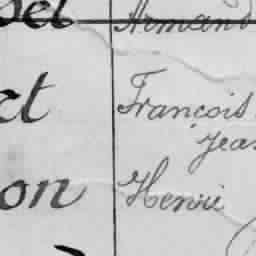 Armand
ct François
Jean
on Henri